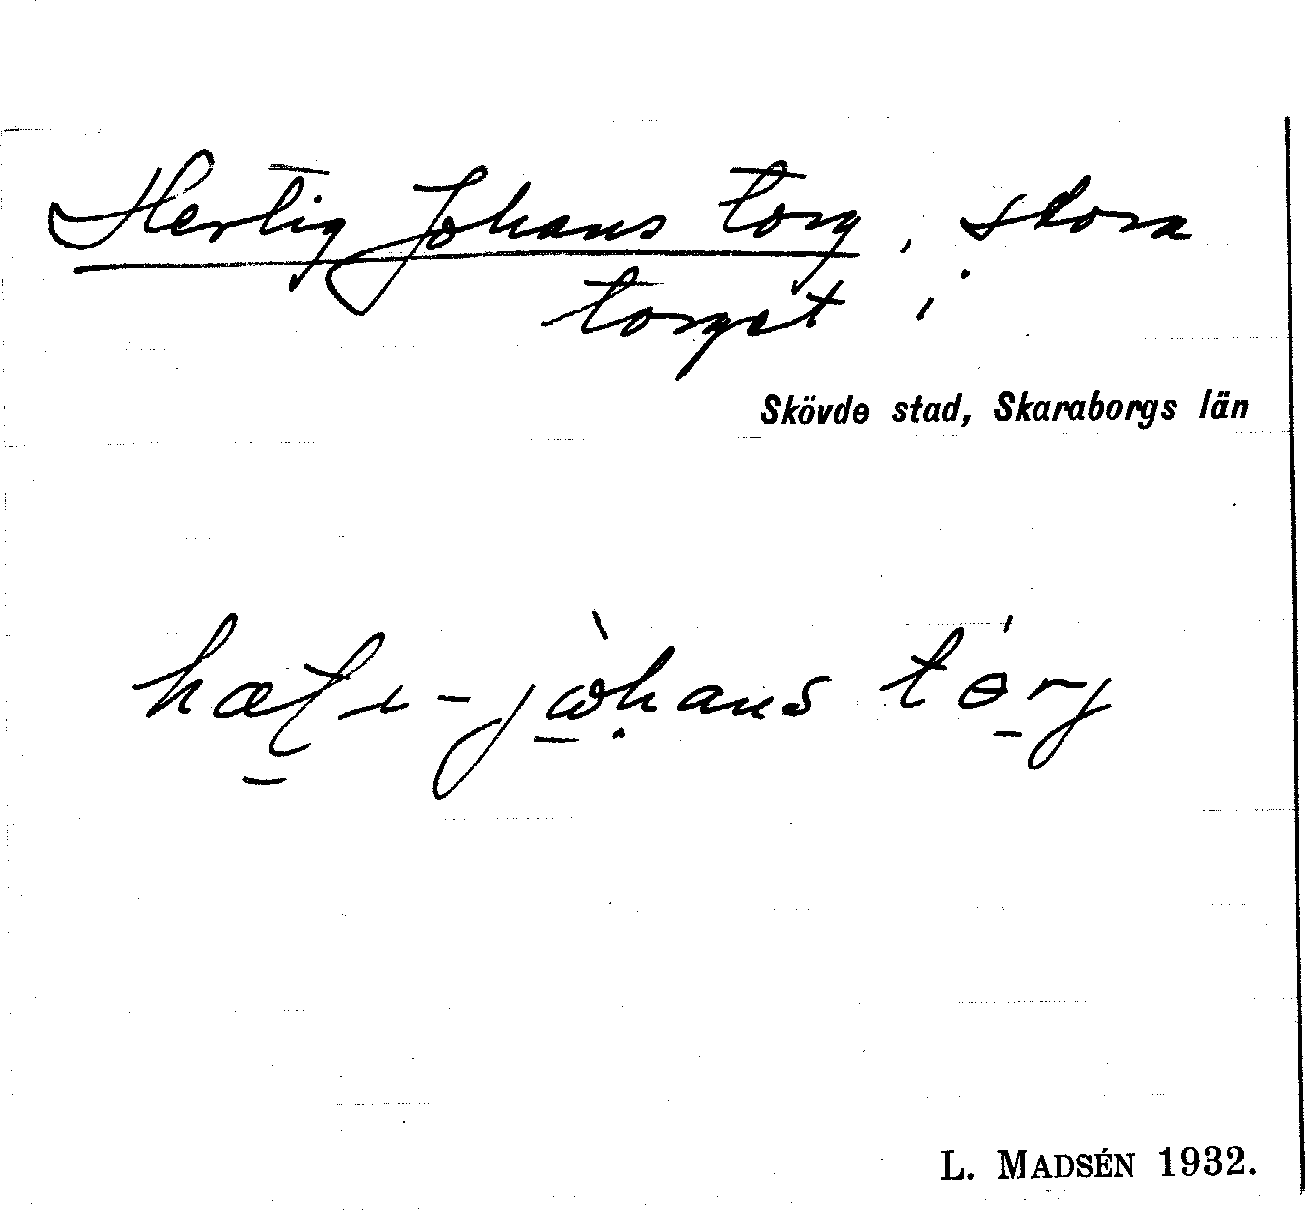 Hertig Johans torg, stora
torget i
Skövde stad, Skaraborgs län
L. MADSÉN 1932.